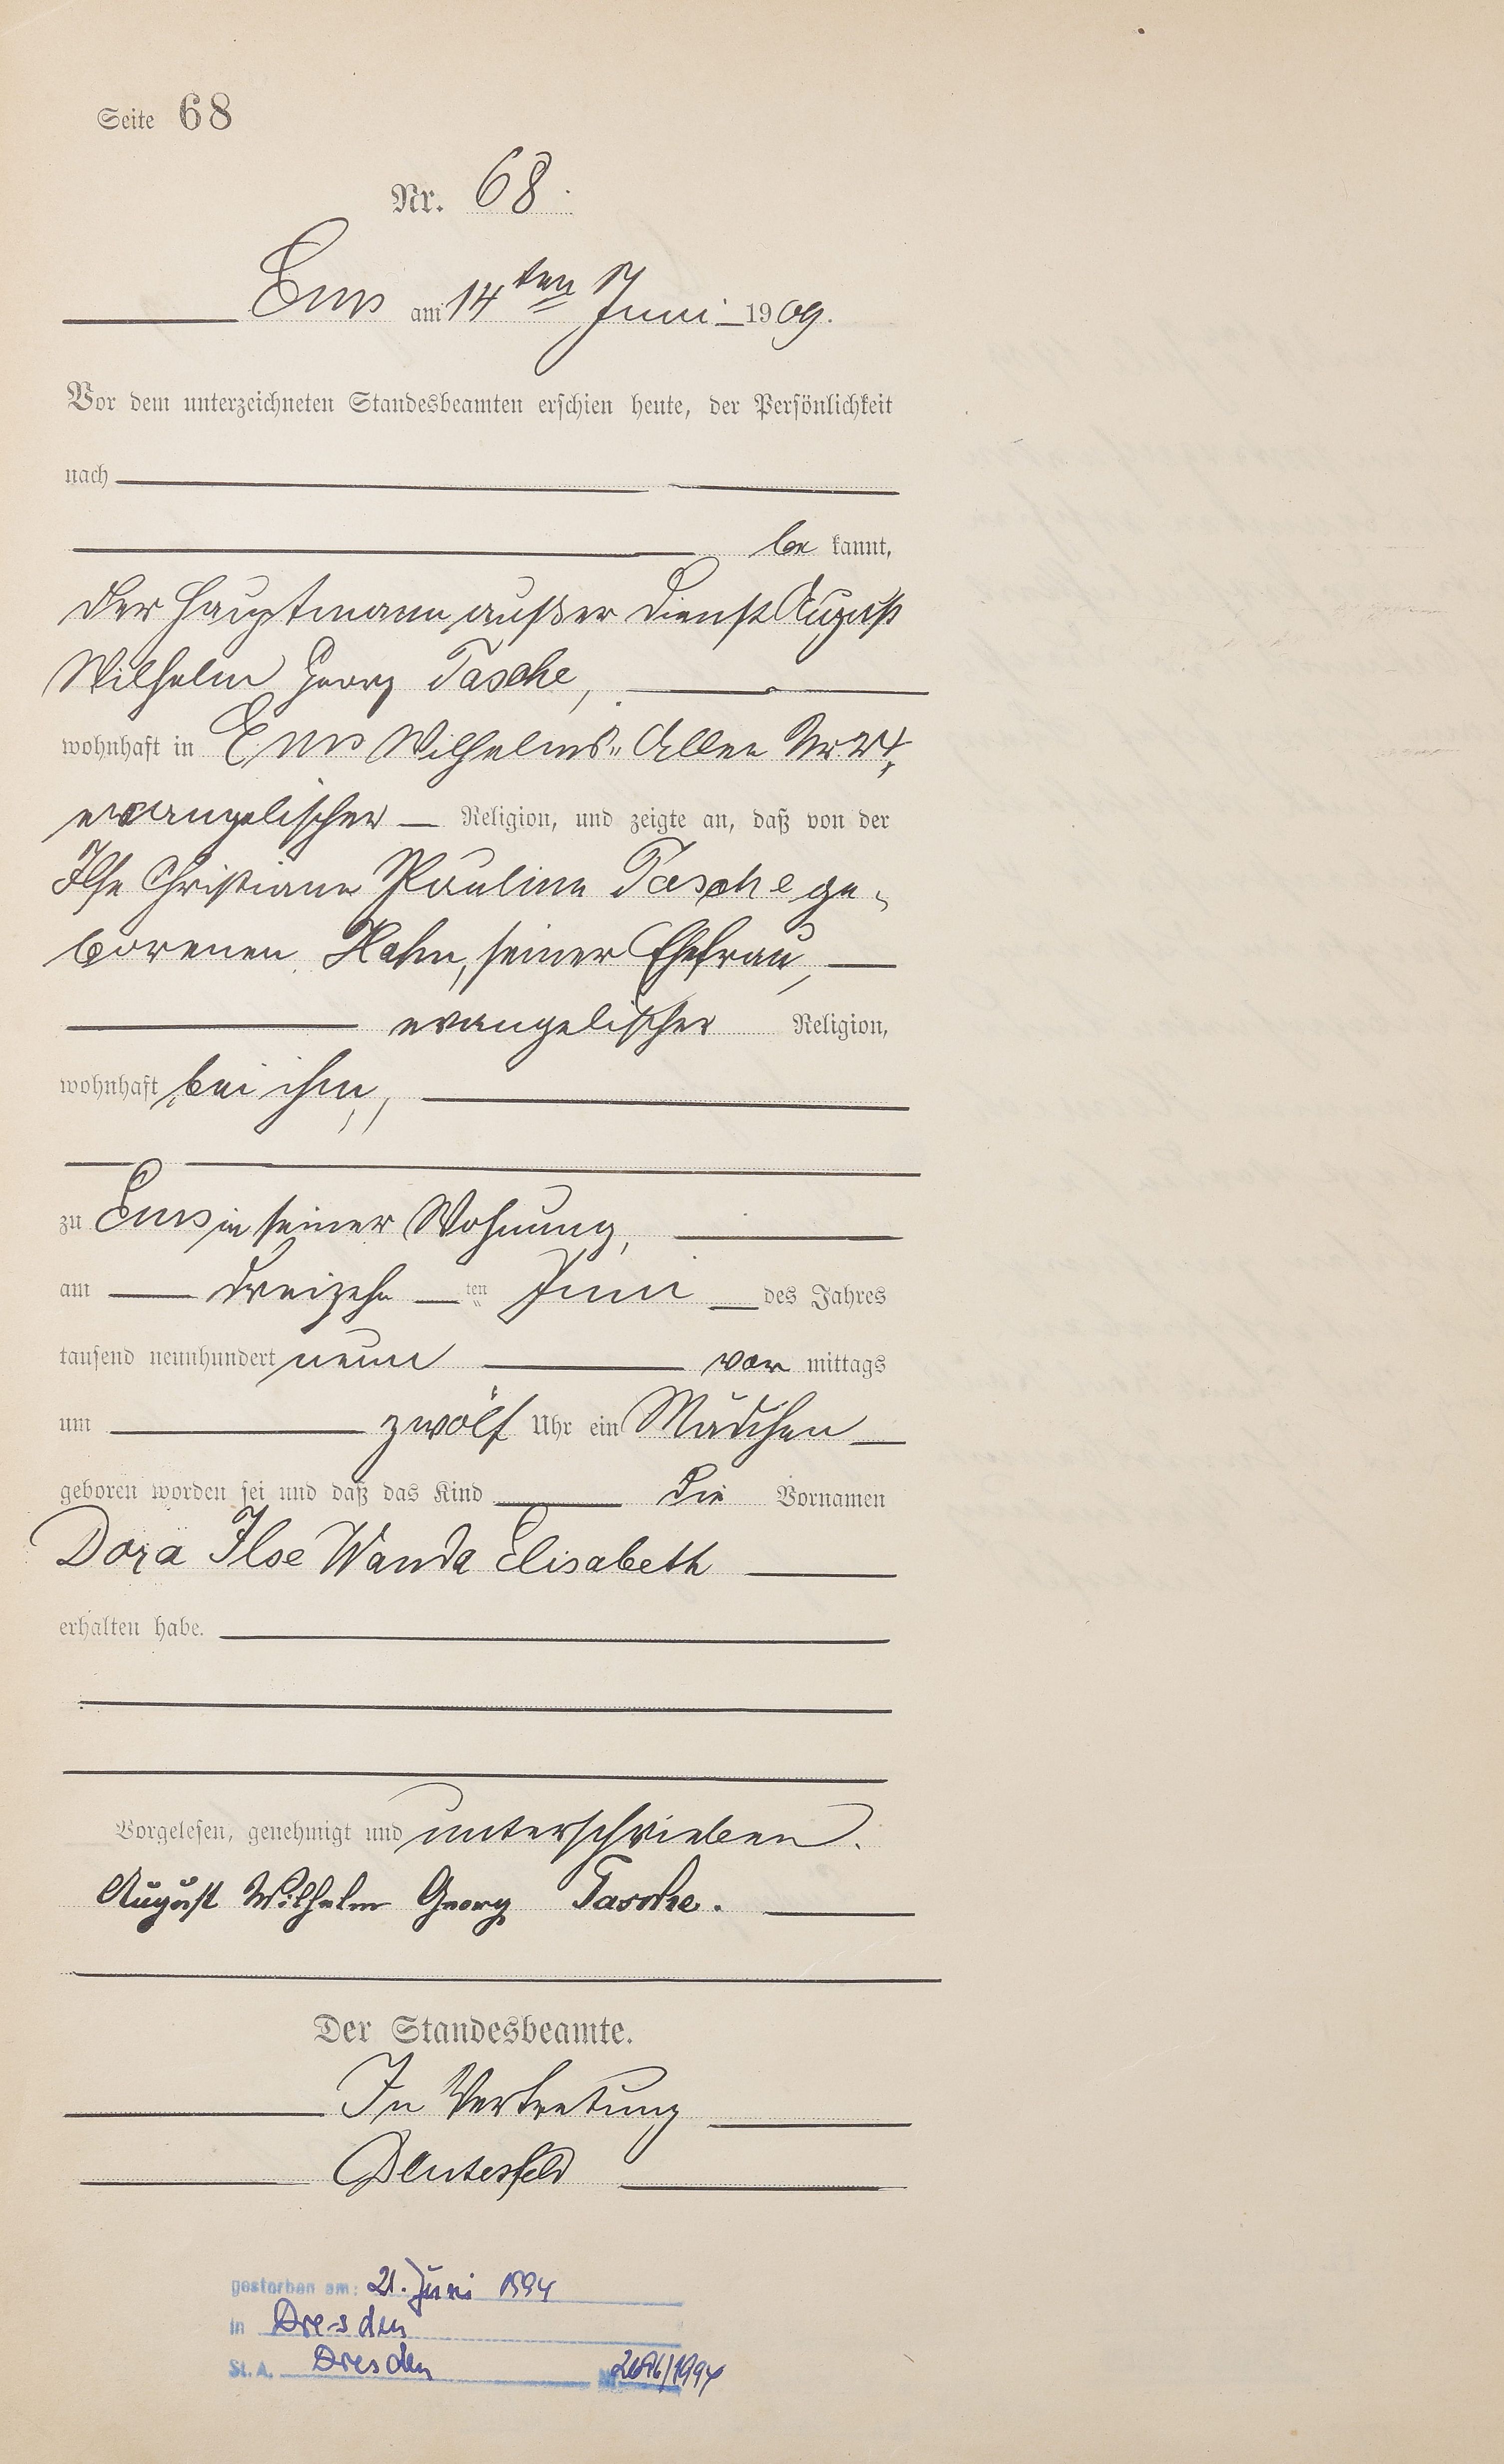 Seite 68
Nr. 68.
Ems am 14ten Juni 1909.
Vor dem unterzeichneten Standesbeamten erschien heute, der Persönlichkeit
nach
be kannt,
der Hauptmann außer Dienst August
Wilhelm Georg Tasche,
wohnhaft in Ems Wilhelms-Allee Nr
evangelischer Religion, und zeigte an, daß von der
Ilse Christiane Pauline Tasche ge-
borenen Hahn, seiner Ehefrau,
evangelischer Religion,
wohnhaft bei ihm,
zu Ems in seiner Wohnung,
am dreizehn ten Juni des Jahres
tausend neunhundert neun vor mittags
um zwölf Uhr ein Mädchen
geboren worden sei und daß das Kind die Vornamen
Dora Ilse Wanda Elisabeth
erhalten habe.
Vorgelesen, genehmigt und unterschrieben.
August Wilhelm Georg Tasche.
Der Standesbeamte.
In Vertretung
gestorben am: 21. Juni 1994
in Dresden
St. A. Dresden Nr. /1994